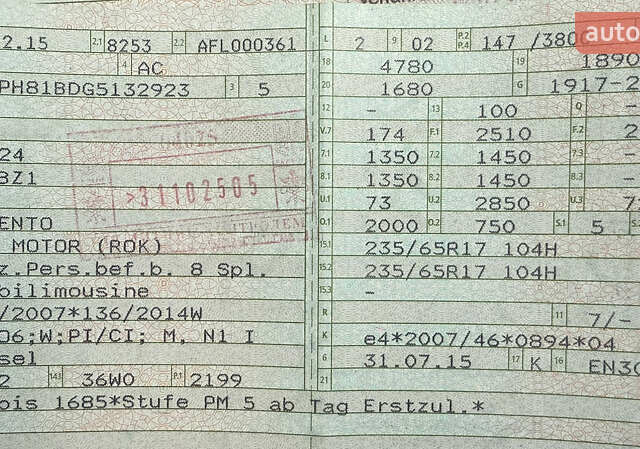 auto
2.15 2.1 8253 2.2 AFL000361
4 AC
PH81BDG5132923 3 5
>31102505
24
BZ1
ENTO
MOTOR (ROK)
z.Pers.bef.b. 8 Spl.
bilimousine
/2007*136/2014W
06;W;PI/CI; M, N1 I
sel
2 14.1 36W0 P.1 2199
bis 1685*Stufe PM 5 ab Tag Erstzul.*
L 2 9 02 P.2 P.4 147 /380
18 4780 19 1890
20 1680 G 1917-2
12 - 13 100 Q -
V.7 174 F.1 2510 F.2 2
7.1 1350 7.2 1450 7.3 -
8.1 1350 8.2 1450 8.3 -
U.1 73 U.2 2850 U.3 7
O.1 2000 O.2 750 S.1 5
15.1 235/65R17 104H
15.2 235/65R17 104H
15.3 -
R 11 7/-
K e4*2007/46*0894*04
6 31.07.15 17 K 16 EN30
21